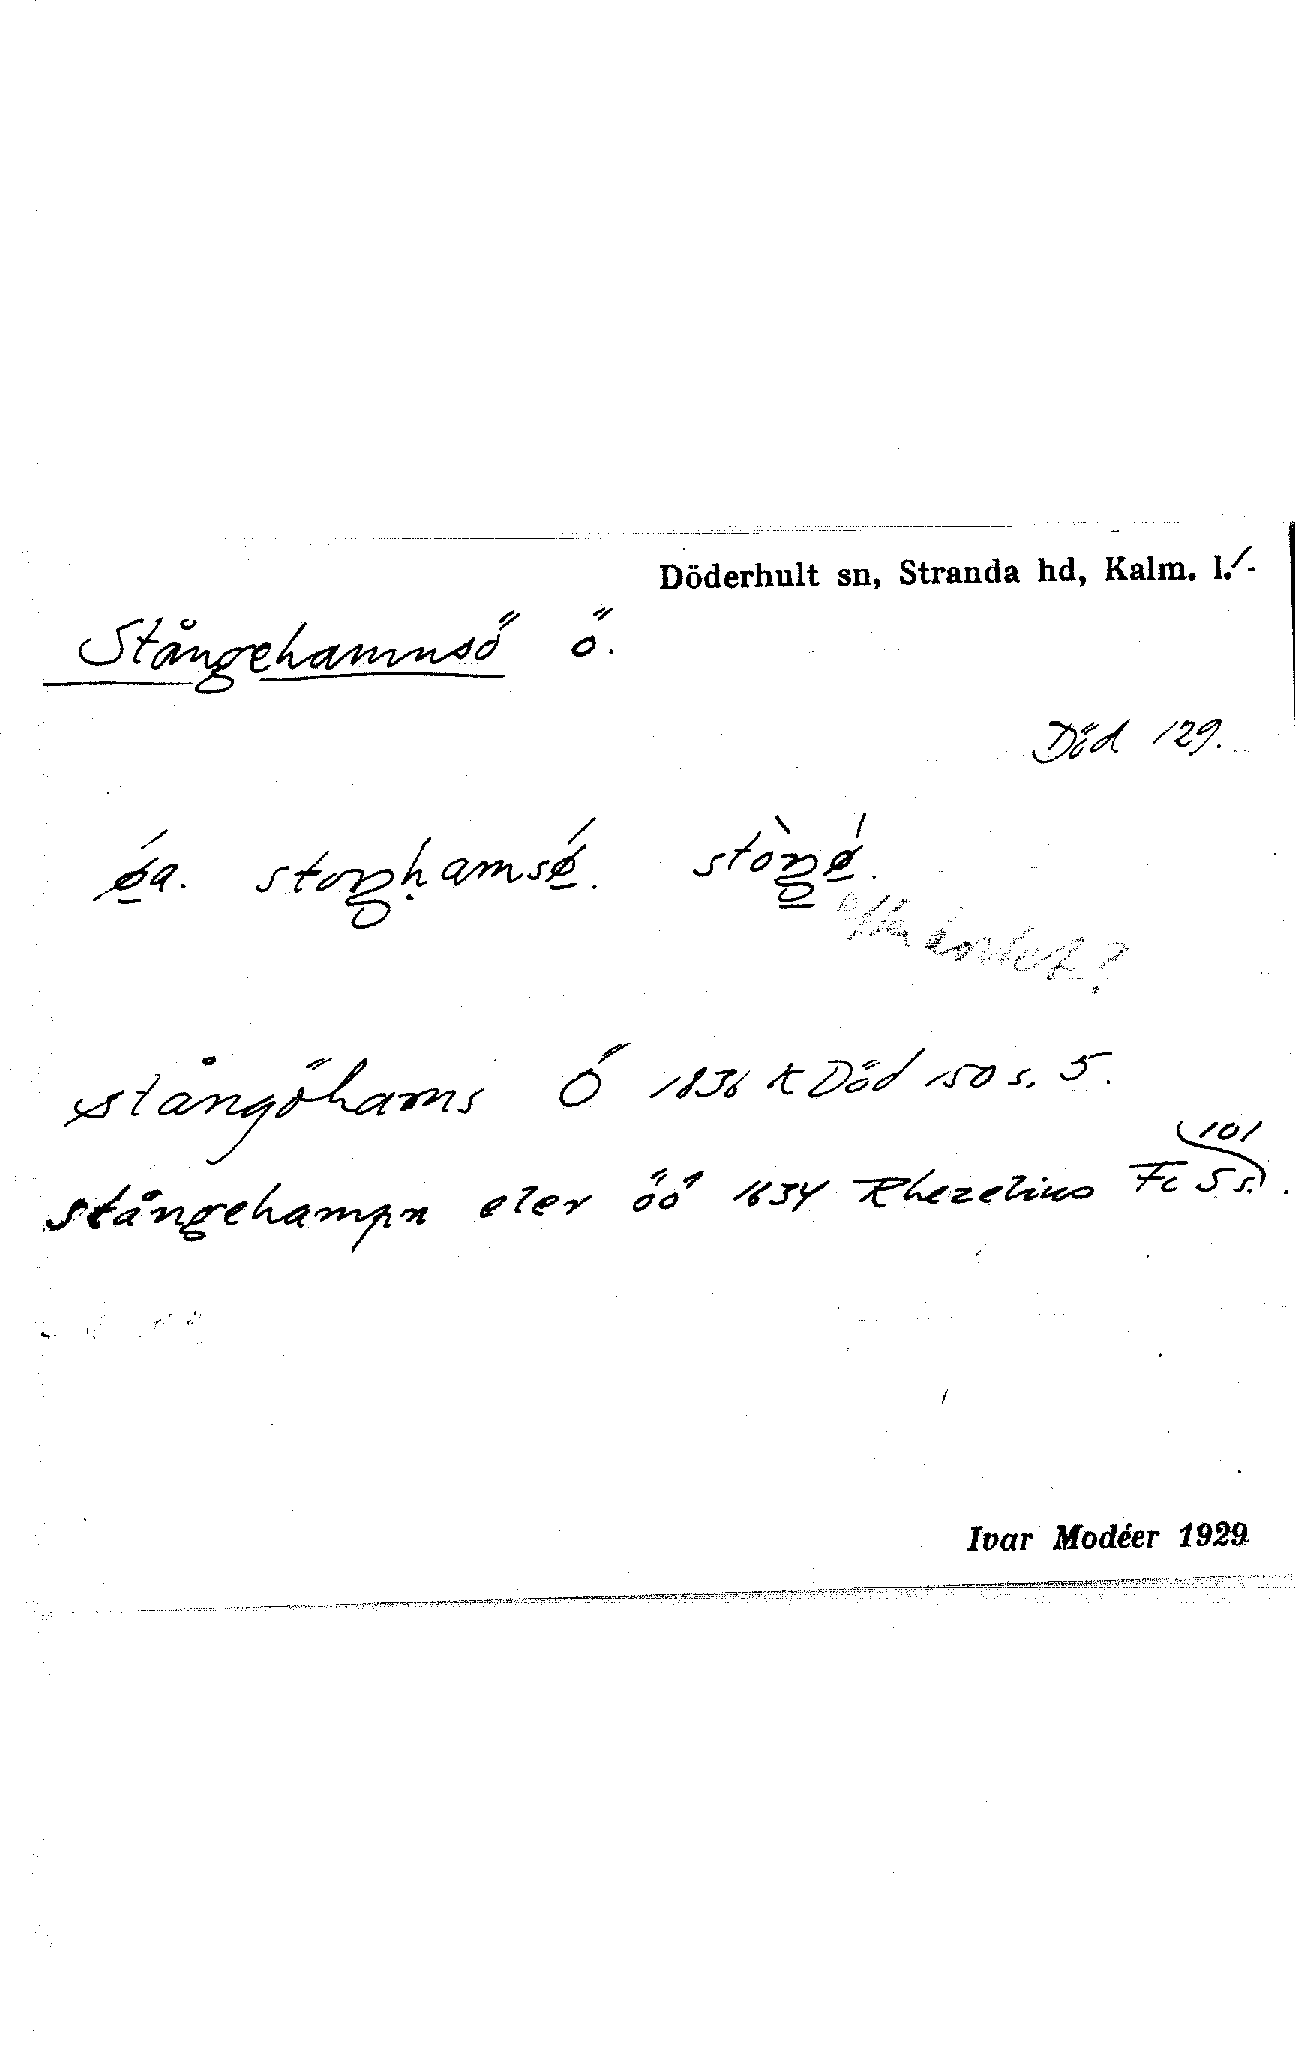 Döderhult sn, Stranda hd, Kalm. l.
Stångehamnsö ö.
Död 129.
ǿa. stoŋhamsǿ. stòŋǿ.
stångöhams Ö 1836 K Död 150 s. 5.
101
stångehampn eler öö 1634 Rhezelius Fc 5 s.
Ivar Modéer 1929